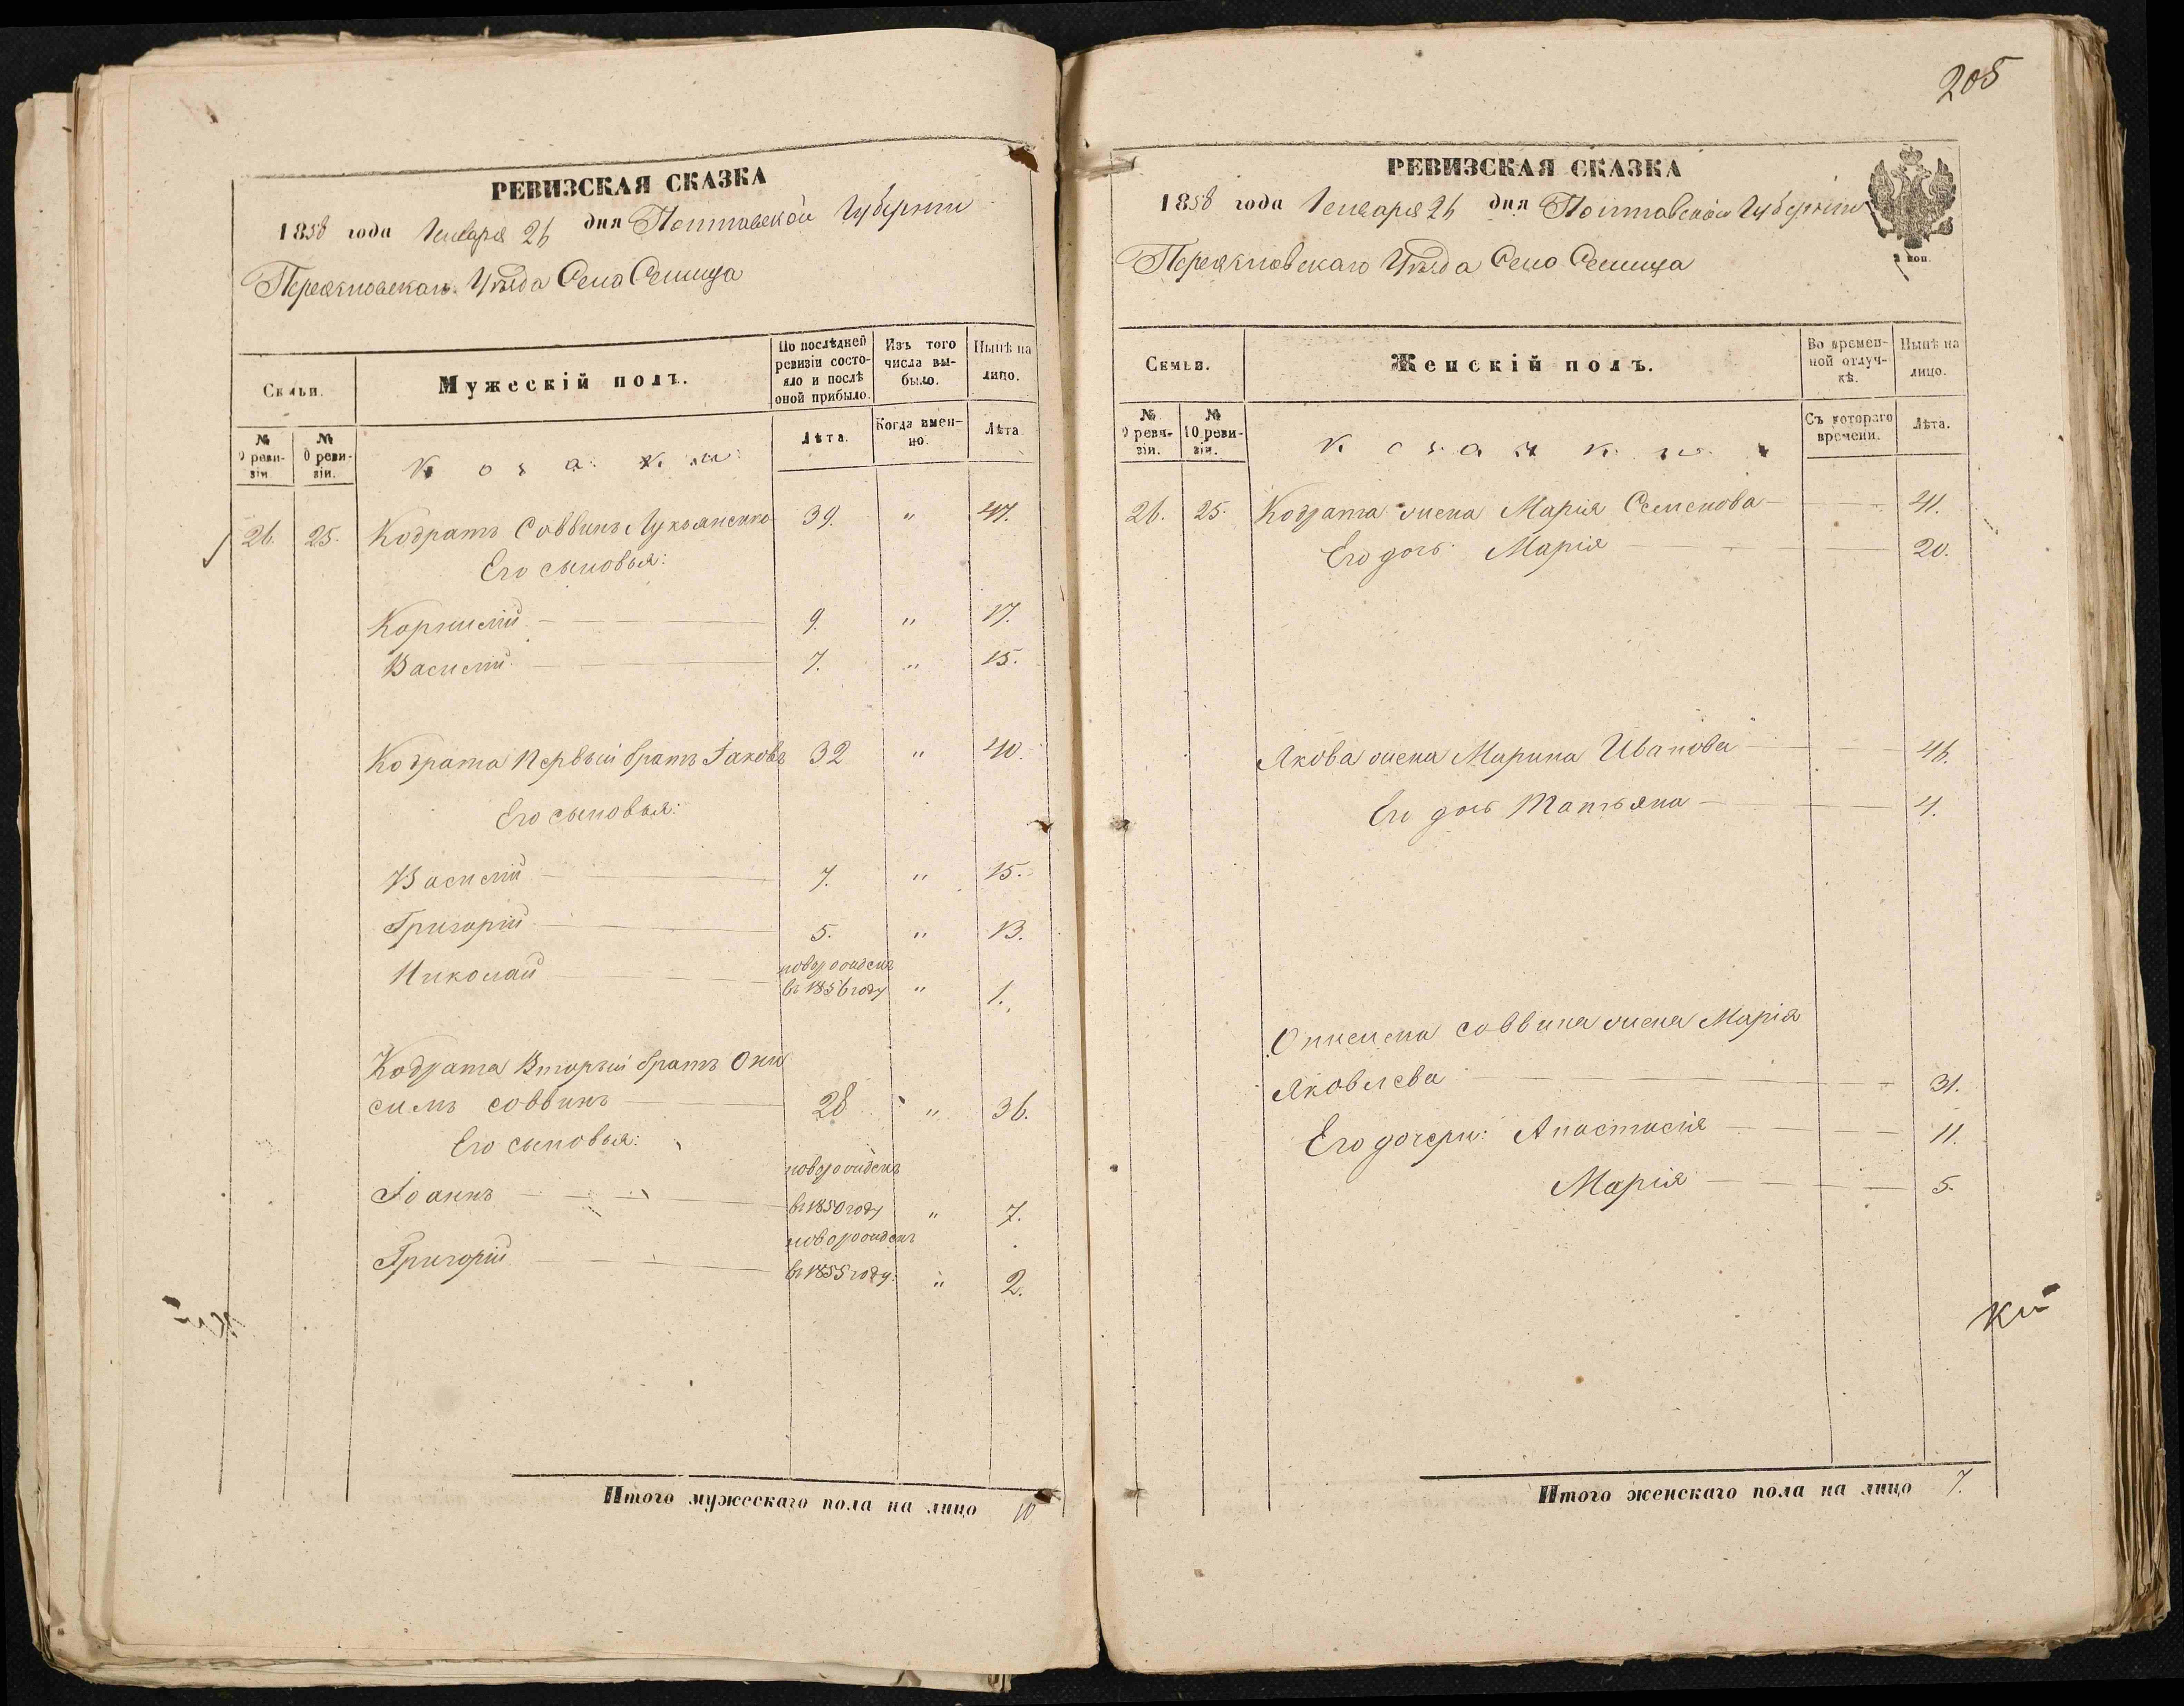 РЕВИЗСКАЯ СКАЗКА
1858 года Генваря 26 дня Полтавской Губернии
Переяславскаго Уѣзда Села Семица
Семьи.
Мужескій полъ.
По послѣдней ревизіи состояло и послѣ оной прибыло.
Изъ того числа выбыло.
Нынѣ на лицо.
№ 9 ревизіи.
№ 10 ревизіи.
Козаки
Лѣта.
Когда именно.
Лѣта
26. 25. Кодратъ Саввинъ Лукьяненко 39. " 47.
Его сыновья:
Корнилій 9. " 17.
Василій 7. " 15.
Кодрата Первый братъ Іаковъ 32 " 40.
Его сыновья:
Василій 7. " 15.
Григорій 5. " 13.
Николай новорожденъ
въ 1856 году " 1.
Кодрата Вторый братъ Они
симъ Саввинъ 28 " 36.
Его сыновья:
новорожденъ
Іоаннъ въ 1850 году " 7.
новорожденъ
Григорій въ 1855 году. " 2.
Итого мужескаго пола на лицо 10
205
РЕВИЗСКАЯ СКАЗКА
1858 года Генваря 26 дня Полтавской Губерніи
Переяславскаго Уѣзда Села Семица
Семьи.
Женскій полъ.
Во временной отлучкѣ.
Нынѣ на лицо.
№ 9 ревизіи.
№ 10 ревизіи.
Козачки
Съ котораго времени.
Лѣта.
26. 25. Кодрата жена Марія Семенова 41.
Его дочь: Марія 20.
Якова жена Марина Иванова 46.
Его дочь Татьяна 4.
Онисима Саввина жена Марія
Яковлева 31.
Его дочери: Анастасія 11.
Марія 5.
кій
Итого женскаго пола на лицо 7.